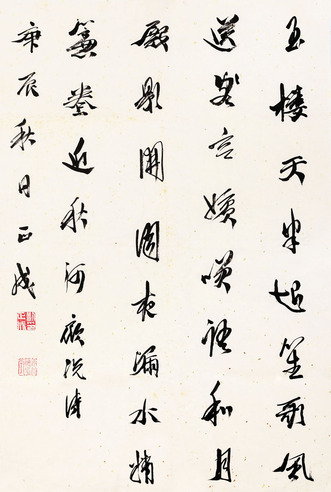 玉樓天半起笙歌風
送宮嬪笑語和月
殿影開聞夜漏水精
簾捲近秋河 顧況詩
庚辰秋日正成